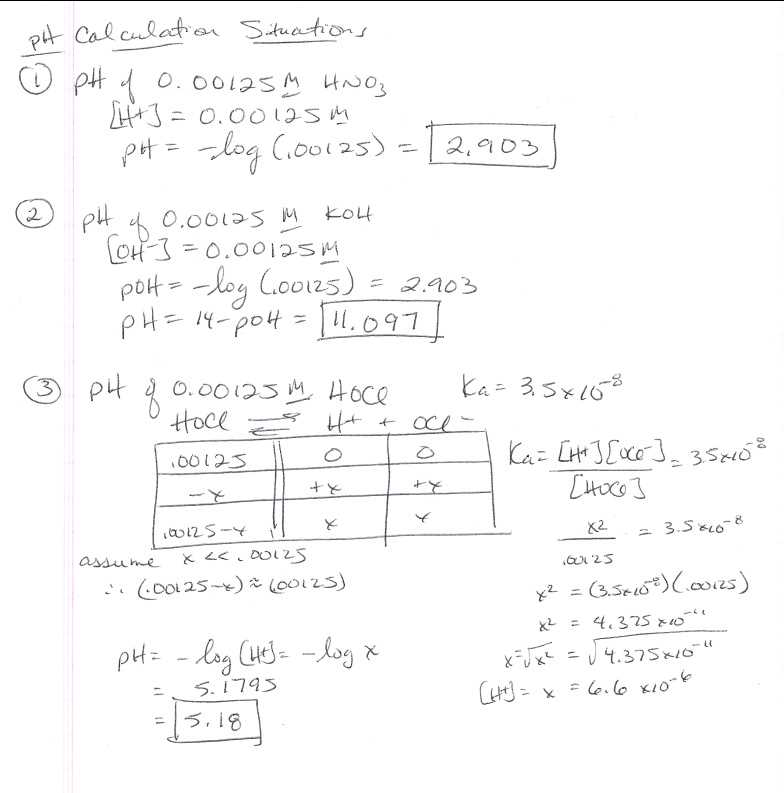 pH Calculation Situations
① pH of 0.00125 M HNO₃
[H+] = 0.00125 M
pH = -log (.00125) = 2.903
② pH of 0.00125 M KOH
[OH-] = 0.00125 M
pOH = -log (.00125) = 2.903
pH = 14-pOH = 11.097
③ pH of 0.00125 M HOCl Ka = 3.5x10⁻⁸
HOCl ⇌ H+ + OCl-
.00125 0 0
-x +x +x
.00125-x x x
Ka = [H+][OCl-] = 3.5x10⁻⁸
[HOCl]
assume x << .00125
∴ (.00125-x) ≈ (.00125)
x² = 3.5x10⁻⁸
.00125
x² = (3.5x10⁻⁸)(.00125)
x² = 4.375x10⁻¹¹
x = √x² = √4.375x10⁻¹¹
[H+] = x = 6.6 x10⁻⁶
pH = -log [H+] = -log x
= 5.1795
= 5.18